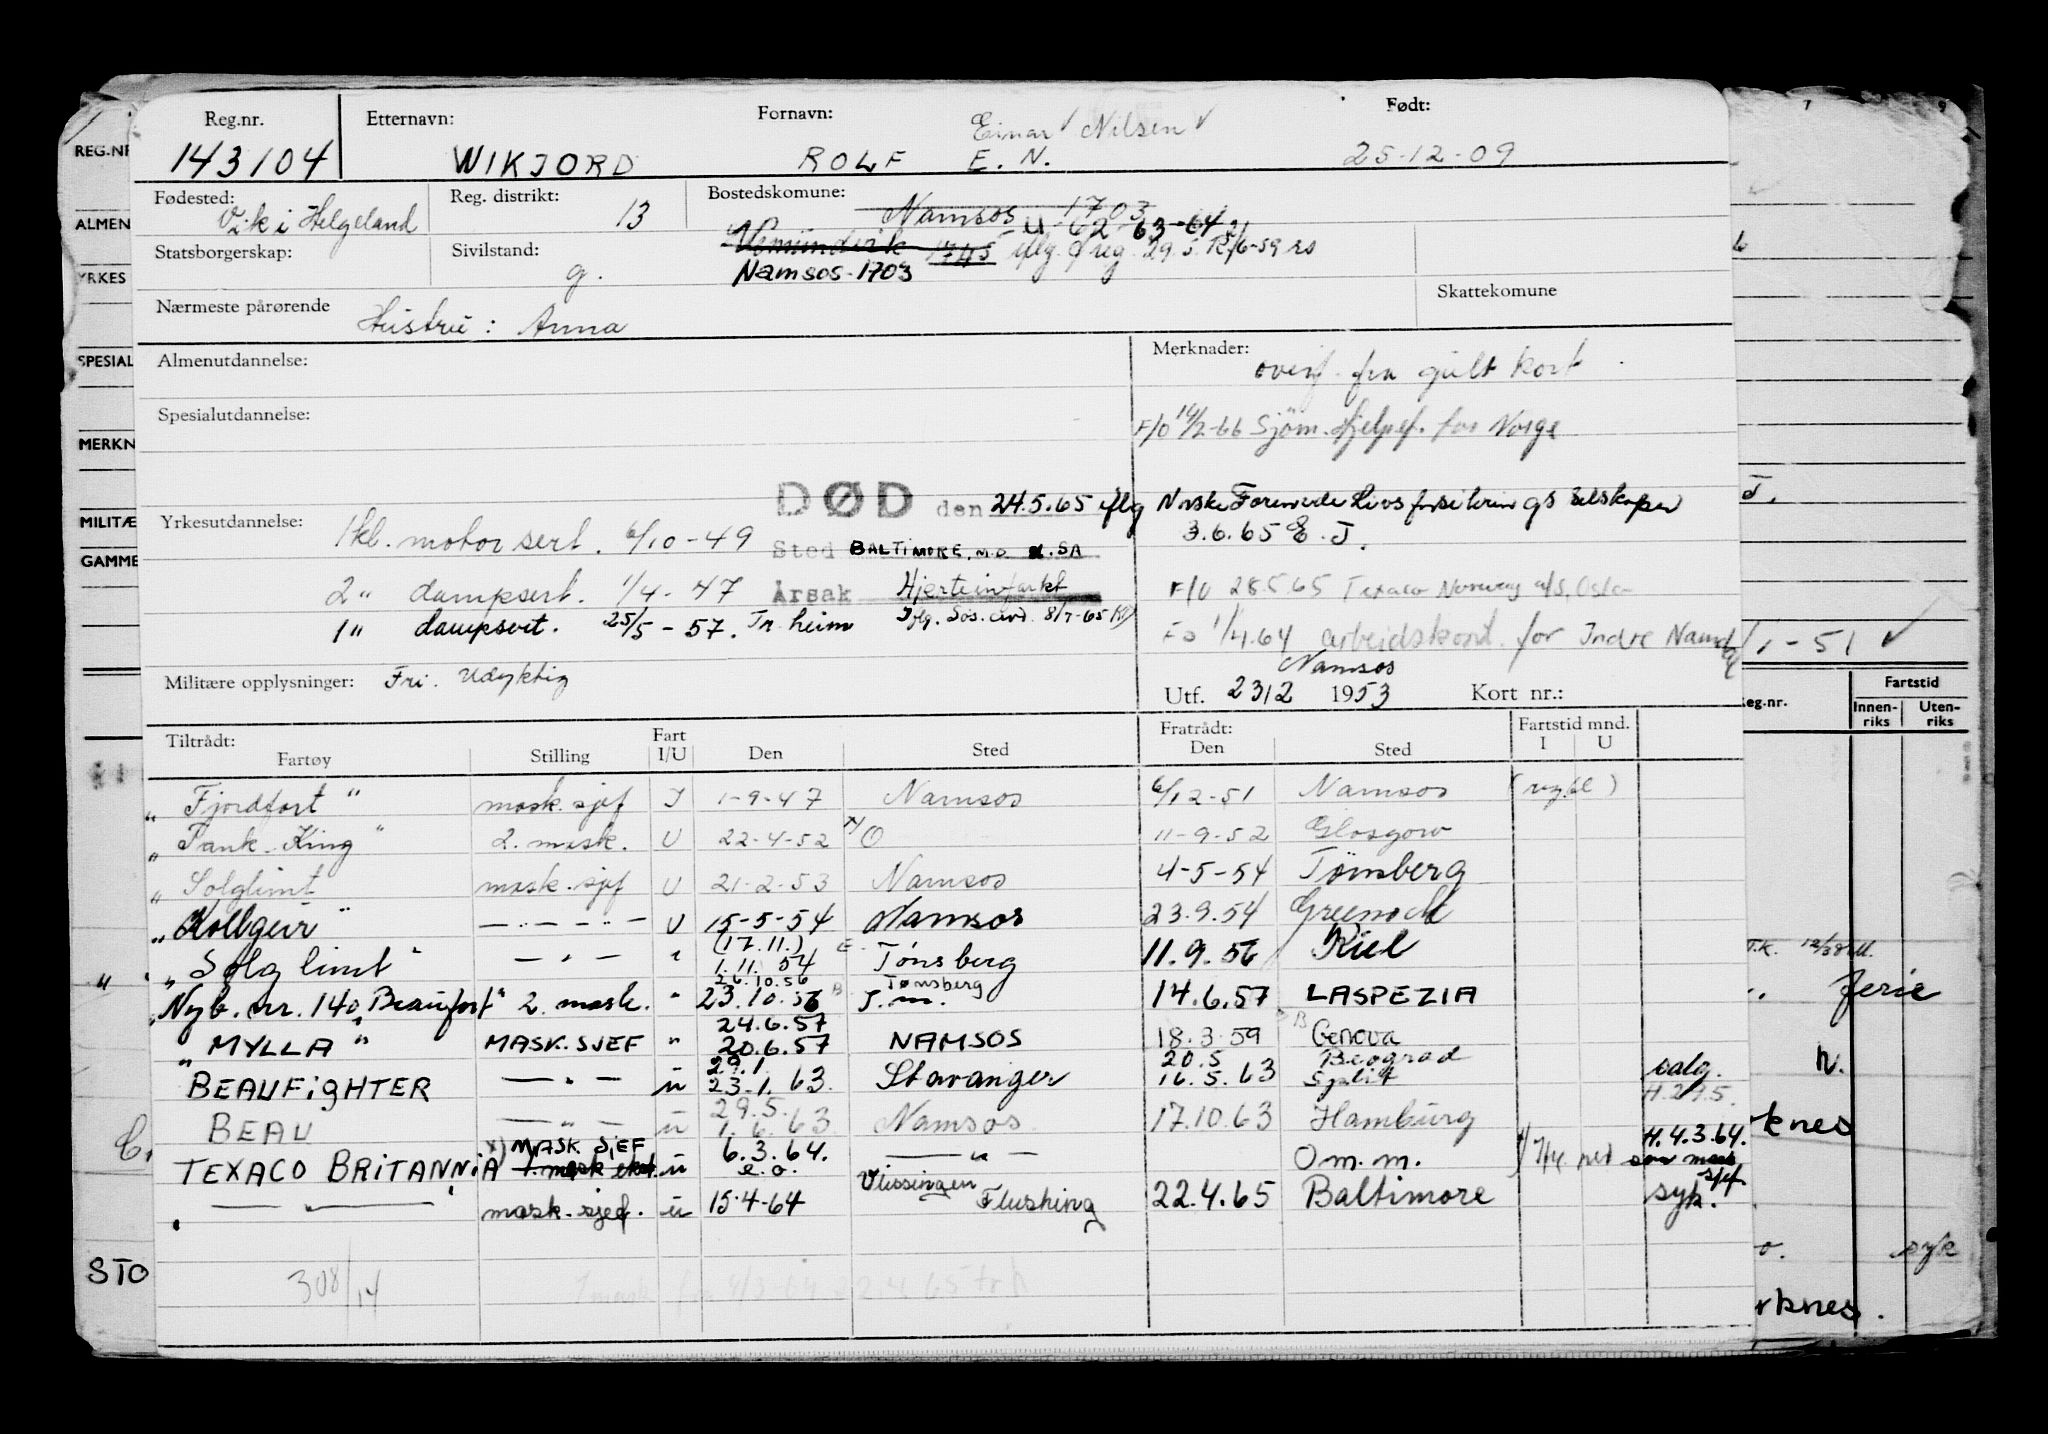 Reg.nr. Etternavn: Fornavn: Født:
Einar Nilsen
143104 WIKJORD ROLF E. N. 25-12-09
Fødested: Vik i Helgeland Reg. distrikt: 13 Bostedskomune: Namsos 1703
U 62 63-64
Statsborgerskap: Sivilstand: g. Vemundvik 1745 iflg. Freg. 29.5.
Namsos-1703
Nærmeste pårørende Hustru: Anna Skattekomune
Almenutdannelse: Merknader: overf. fra gult kort
Spesialutdannelse: F/O 14/2-66 Sjöm. Hjelpef. for Norge
DØD den 24.5.65 iflg Norske Forenede Livsforsikrings Selskaper
Yrkesutdannelse: 3.6.65 E. J.
1 kl. motorsert. 6/10-49 Sted BALTIMORE, M.D. U.SA
2 " dampsert. 1/4-47 Årsak Hjerteinfarkt F/O 28.5.65 Texaco Norway a/s. Oslo
1 " dampsert. 25/5-57. Tr.heim Iflg. Sos. avd. 8/7-65 Fo 1/4.64 arbeidskont. for Indre Namdal
Namsos
Militære opplysninger: Fri. Udyktig Utf. 23/2 1953 Kort nr.:
Tiltrådt: Fart Fratrådt: Fartstid mnd.
Fartøy Stilling I/U Den Sted Den Sted I U
"Fjordfort" mask.sjef I 1-9-47 Namsos 6/12-51 Namsos
"Tank King" 2. mask. U 22-4-52 O 11-9-52 Glasgow
"Solglimt mask.sjef U 21-2-53 Namsos 4-5-54 Tønsberg
"Kollgeir" — " — " — U 15-5-54 Namsos 23.9.54 Greenock
(17.11.)
"Solglimt" — " — " 1.11. 54 Tønsberg 11.9.56 Kiel
26.10.56 Tønsberg
"Nyb. nr. 140, Beaufort" 2. mask. " 23.10.56 T.m. 14.6.57 LASPEZIA
24.6.57
"MYLLA" MASK.SJEF " 20.6.57 NAMSOS 18.3.59 Genova
29.1 20.5 Beograd
BEAUFIGHTER — " — u 23.1.63. Stavanger 16.5.63 Split salg.
29.5. H.29.5.
BEAU — " — u 1.6.63 Namsos 17.10.63 Hamburg
MASK SJEF H.4.3.64.
TEXACO BRITANNIA 1. mask ekst. u 6.3.64. — " — Om.m. som mask
e.o. sjef
— " — mask.sjef. u 15-4-64 Vlissingen Flushing 22.4.65 Baltimore syk.
308/14
REG.NR
ALMEN
YRKES
SPESIAL
MERKN
MILITÆ
GAMME
STO
J.
1-51
Reg.nr. Fartstid
Innen-riks Uten-riks
ferie
rknes
syk
rknes.